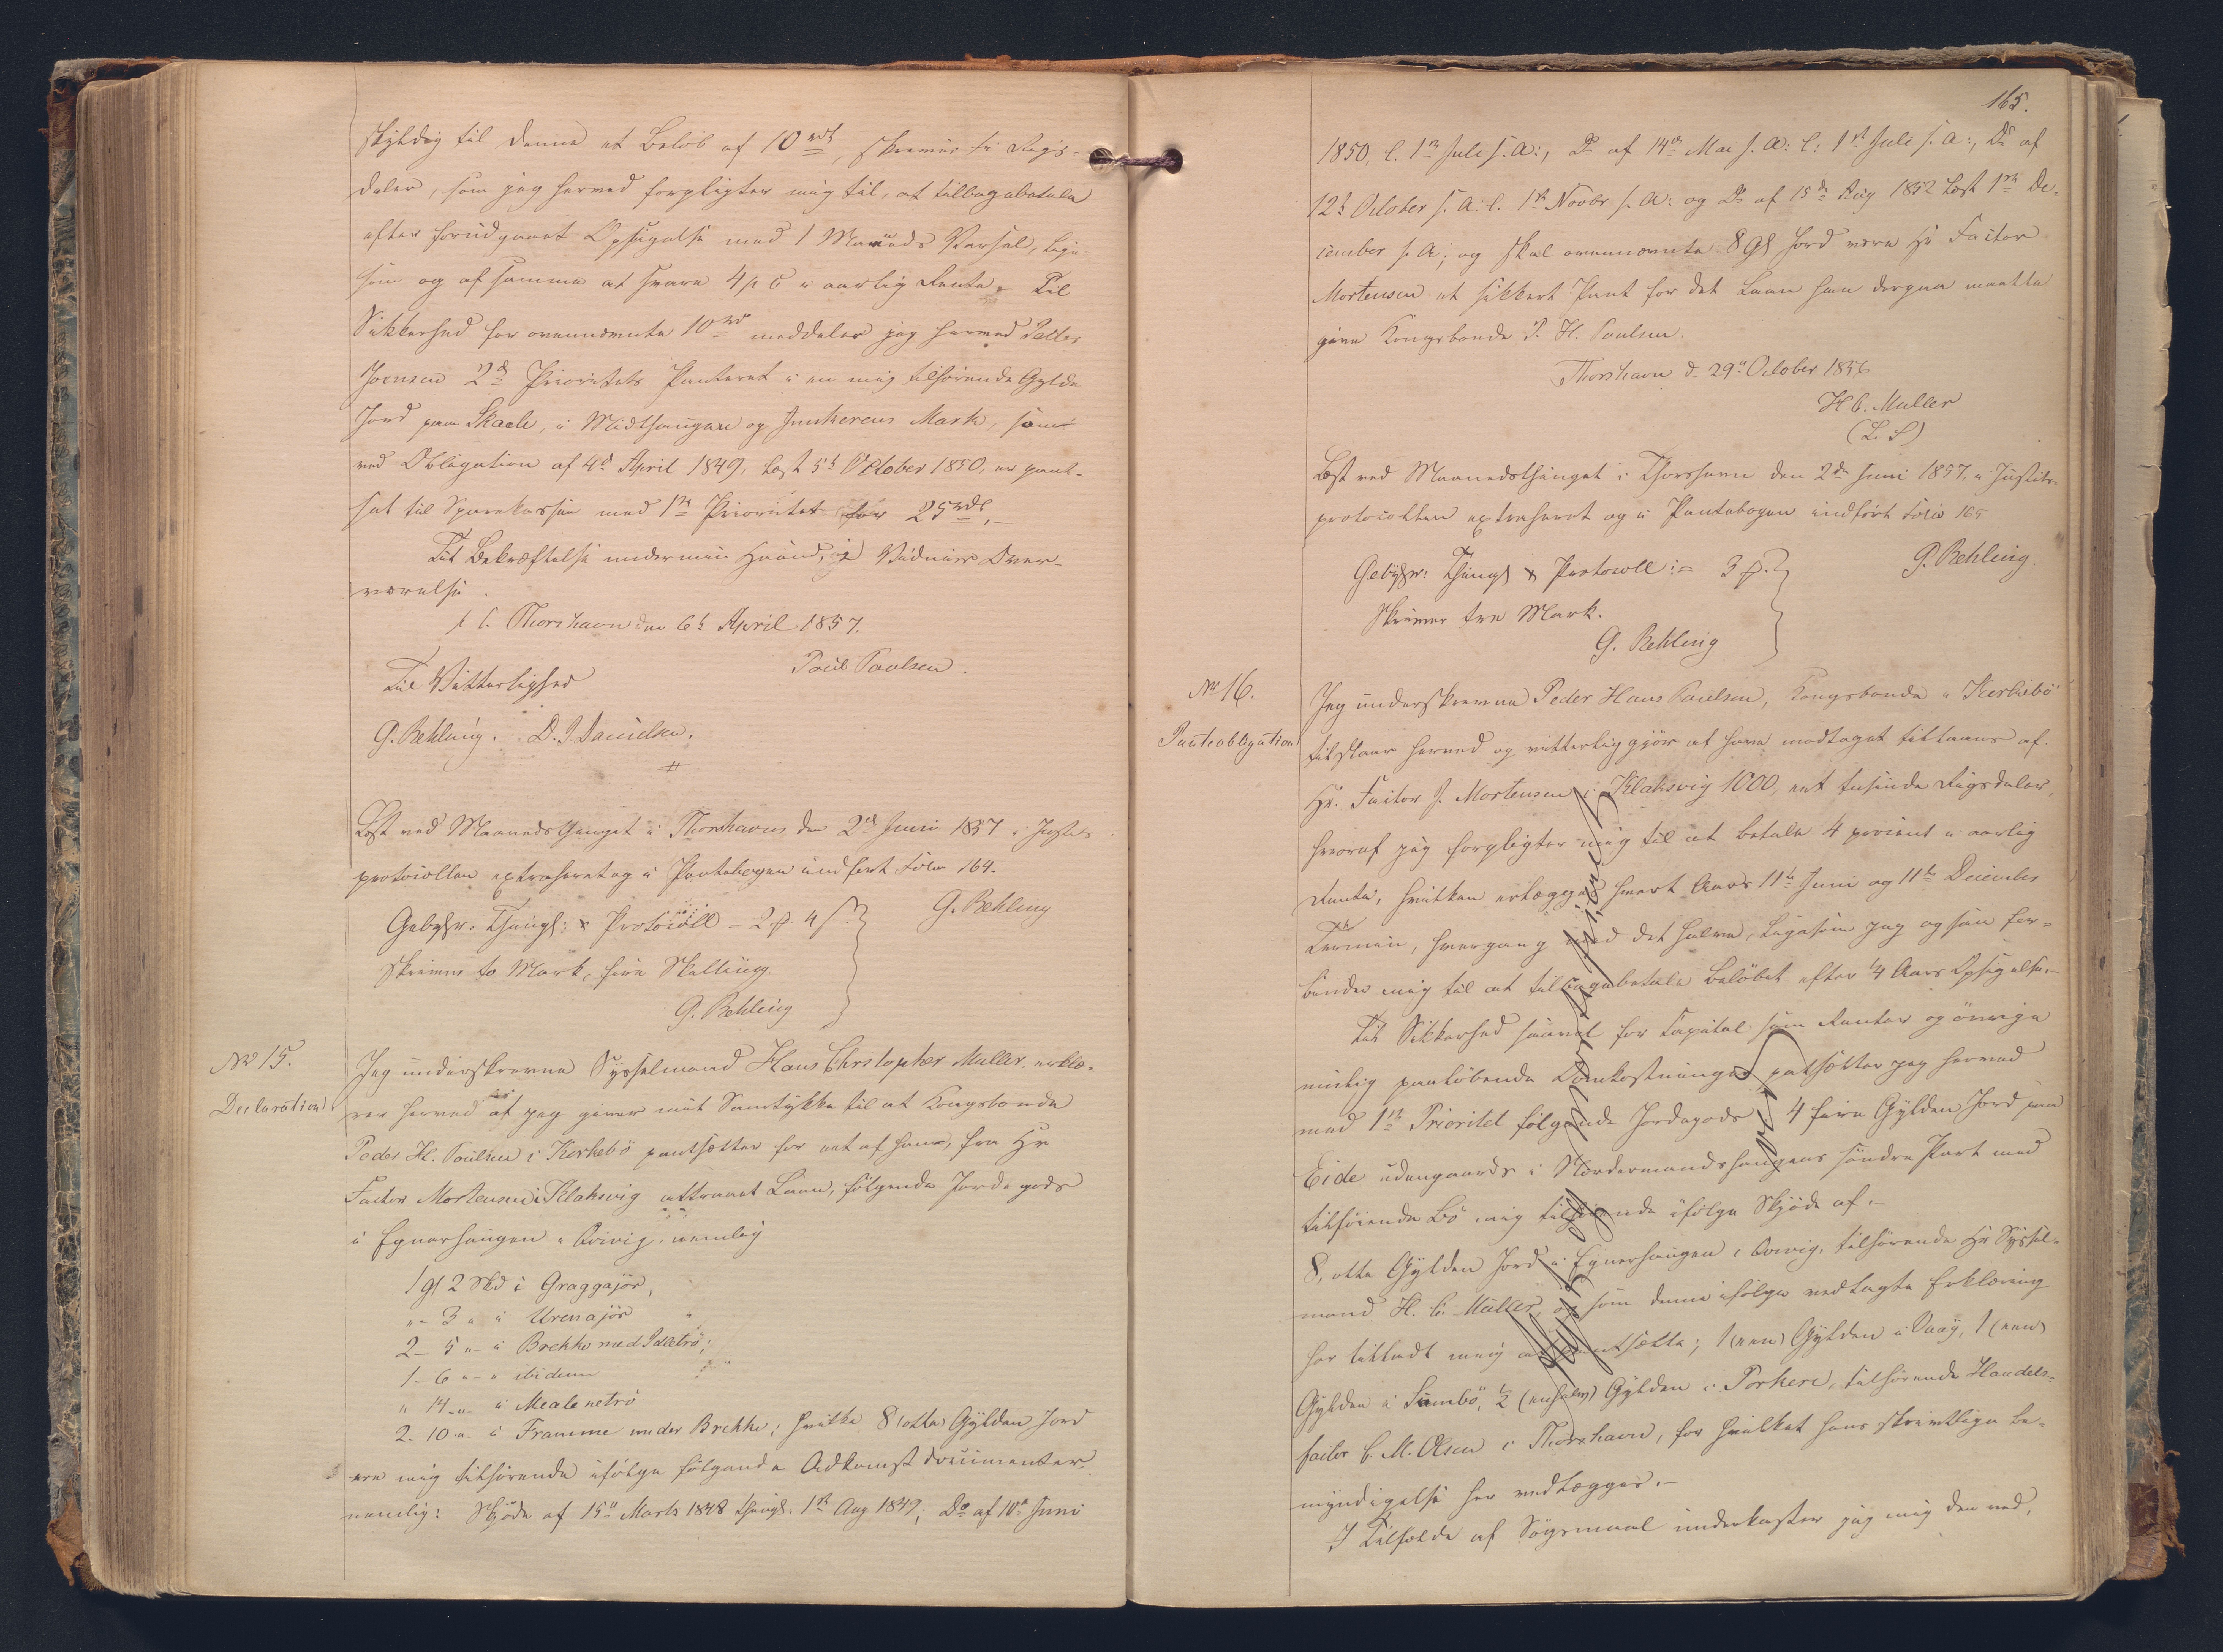 skyldig til denne et Beløb af 10 rd, skriver ti Rigs-
daler, som jeg herved forpligter mig til, at tilbagebetale
efter forudgaaet Opsigelse med 1 Maaneds Varsel, lige-
som og af samme at svare 4 p C i aarlig Rente. Til
Sikkerhed for ovennævnte 10 rd meddeler jeg herved
Joensen 2d Prioritets Panteret i en mig tilhørende Gylde
Jord paa Skaale, i Midthaugen og Junkerens Mark, som
ved Obligation af 4d April 1849, læst 5t October 1850, er pant-
sat til Sparekassen med 1ste Prioritet for 25 rdl.
Til Bekræftelse under min Haand, i Vidners Over-
værelse.
p. t. Thorshavn den 6t April 1857.
Poul Poulsen.
Til Vitterlighed
G. Rehling. D. J. Danielsen.
Læst ved Maanedsthinget i Thorshavn den 2d Juni 1857 i Justits-
protocollen extraheret og i Pantebogen indført Folio 164.
G. Rehling
Gebyhr: Thingl: & Protocoll = 2 ₰ 4 s
Skriver to Mark, fire Skilling.
G. Rehling
No 15.
Declaration
Jeg underskrevne Sysselmand Hans Christopher Müller, erklæ-
rer herved at jeg giver mit Samtykke til at Kongsbonde
Peder H. Poulsen i Kirkebø pantsætter for et af ham, fra Hr
Factor Mortensen i Klaksvig attraaet Laan, følgende Jordegods
i Egnerhaugen i Qvivig, nemlig
1 Gl 2 Skd i Graggajør,
" - 3 " i Urenajør
2 - 5 " - i Brekke med Saltrø;
1 - 6 " - " ibidem
" 14 - " - i Mealenetrø
2 - 10 " - i Framme under Brekke; hvilke 8 (otte) Gylden Jord
ere mig tilhørende ifølge følgende Adkomstdocumenter,
nemlig: Skjøde af 15d Marts 1848 thingl. 1st Aug 1849; Do af 10d Juni
165.
1850, l. 1st Juli s. A:, Do af 14d Mai s. A: l: 1st Juli s. A:, Do af
12t October s. A: l. 1st Novbr s. A: og Do af 15d Aug 1852 læst 1st De-
cember s. A; og skal ovennævnte 8 Gl Jord være Hr Factor
Mortensen et sikkert Pant for det Laan han derpaa maatte
give Kongsbonde P. H. Poulsen.
Thorshavn d. 29d October 1856
H C. Müller
(L. S)
Læst ved Maanedsthinget i Thorshavn den 2d Juni 1857, i Justits-
protocollen extraheret og i Pantebogen indført Folio 165
G. Rehling.
Gebyhr: Thingl & Protocoll := 3 ₰.
Skriver tre Mark.
G. Rehling
No 16.
Panteobligation
Jeg underskrevne Peder Hans Poulsen, Kongsbonde i Kirkebø
tilstaar herved og vitterliggjør at have modtaget tillaans af
Hr. Factor J. Mortensen i Klaksvig 1000, eet tusinde Rigsdaler,
hvoraf jeg forpligter mig til at betale 4 procent i aarlig
Rente, hvilken erlægges hvert Aars 11te Juni og 11te December
Termin, hvergang med det halve, ligesom jeg ogsaa for-
binder mig til at tilbagebetale Beløbet efter 1/4 Aars Opsigelse.
Til Sikkerhed saavel for Capital som Renter og øvrige
mulig paaløbende Omkostninger pantsætter jeg herved
med 1ste Prioritet følgende Jordegods: 4 fire Gylden Jord paa
Eide udengaards i Nordermandshaugens søndre Part med
tilhøiende Bø mig tilhørende ifølge Skjøde af.
8, otte Gylden Jord i Egnerhaugen i Qvivig, tilhørende Hr Syssel-
mand H. C. Müller, og som denne ifølge vedlagte Erklæring
har tilladt mig at pantsætte; 1 (een) Gylden i Vaag, 1 (een)
Gylden i Sumbø, 1/2 (en halv) Gylden i Porkere, tilhørende Handels-
factor C. M. Olsen i Thorshavn, for hvilket hans skriftlige Be-
myndigelse her vedlægges.
I Tilfælde af Søgsmaal underkaster jeg mig den ved,